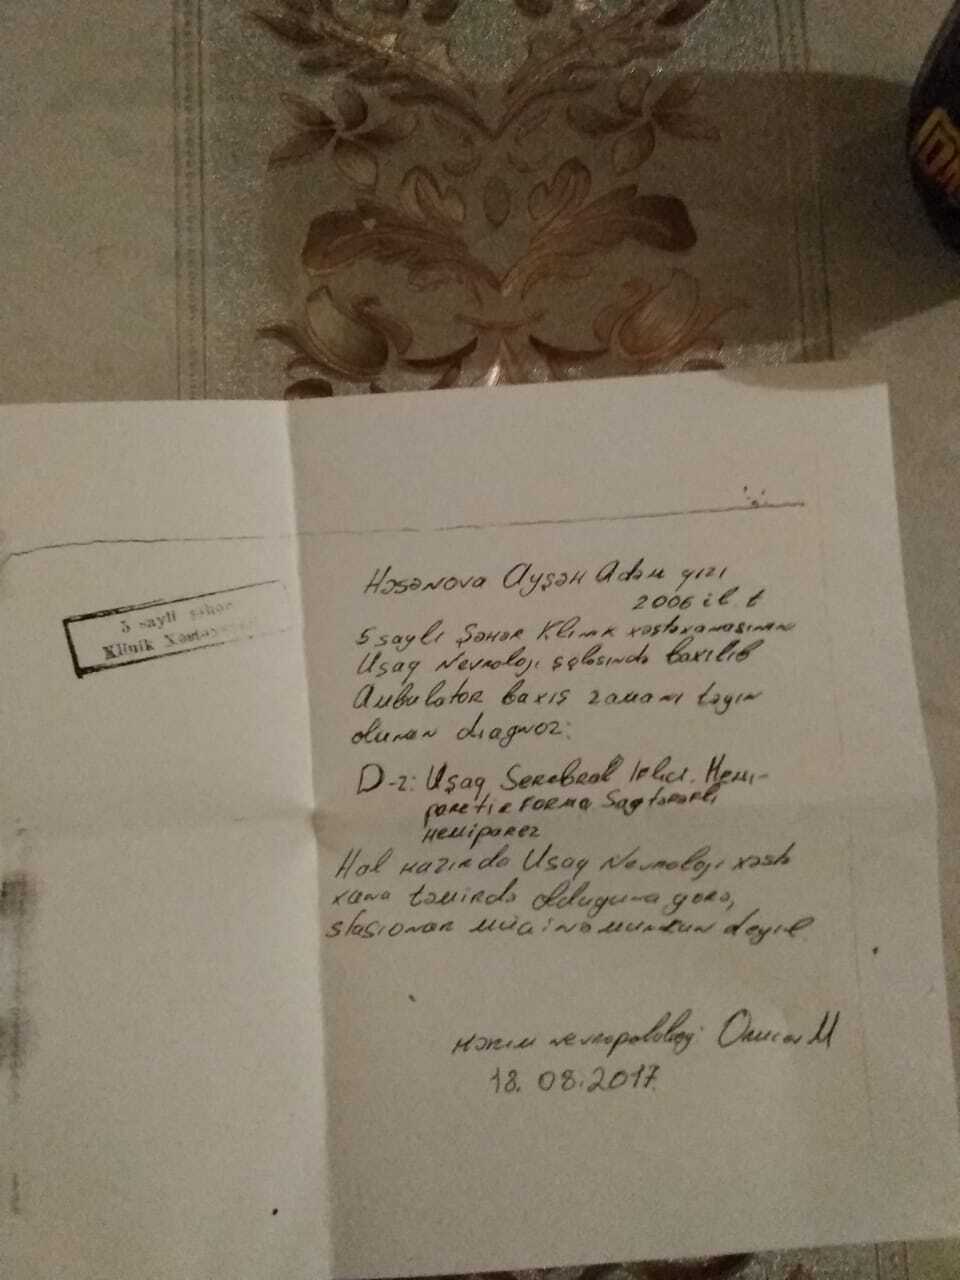 Həsənova Ayşən Adəm qızı
2006 il. t
5 saylı Şəhər Klinik xəstəxanasının
Uşaq Nevroloji şöbəsində baxılıb
Ambulator baxış zamanı təyin
olunan diaqnoz:
D-z: Uşaq Serebral İflici. Hemi-
paretik forma Sağtərəfli
Hemiparez
Hal hazırda Uşaq Nevroloji xəstə
xana təmirdə olduğuna görə,
stasionar müainə mümkün deyil.
Həkim nevropatoloq:
18.08.2017
5 saylı şəhər
Klinik